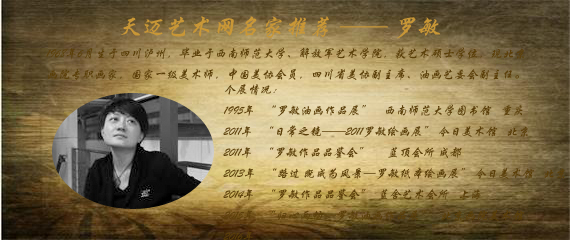 天迈艺术网名家推荐——罗敏
月生于四川泸州，毕业于西南师范大学、解放军艺术学院，获艺术硕士学位。现北京
画院专职画家，国家一级美术师，中国美协会员，四川省美协副主席、油画艺委会副主任。
个展情况：
1995年 “罗敏油画作品展” 西南师范大学图书馆 重庆
2011年 “日常之镜——2011罗敏绘画展” 今日美术馆 北京
2011年 “罗敏作品品鉴会” 蓝顶会所 成都
2013年 “路过 既成为风景—罗敏纸本绘画展” 今日美术馆
2014年 “罗敏作品品鉴会” 蓝舍艺术会所 上海